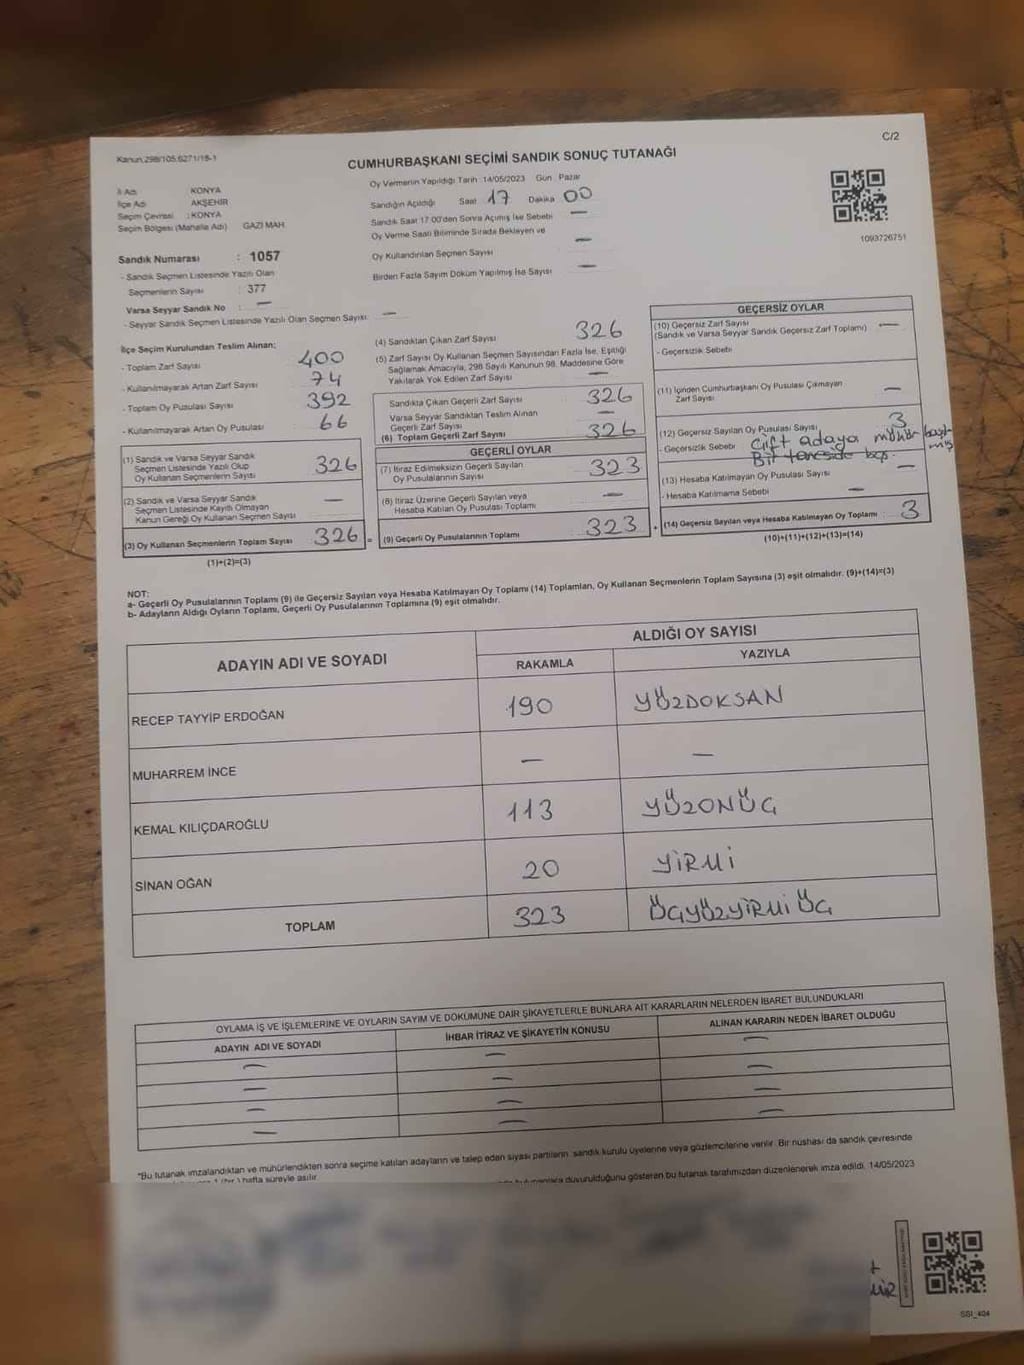 Kanun.298/105.6271/16-1
C/2
CUMHURBAŞKANI SEÇİMİ SANDIK SONUÇ TUTANAĞI
İl Adı KONYA
İlçe Adı AKŞEHİR
Seçim Çevresi : KONYA
Seçim Bölgesi (Mahalle Adı) GAZİ MAH.
Oy Vermenin Yapıldığı Tarih :14/05/2023 Gün : Pazar
Sandığın Açıldığı Saat 17 Dakika 00
Sandık Saat 17:00'den Sonra Açılmış İse Sebebi —
Oy Verme Saati Bitiminde Sırada Bekleyen ve
Oy Kullandırılan Seçmen Sayısı —
Birden Fazla Sayım Döküm Yapılmış İse Sayısı —
1093726751
Sandık Numarası : 1057
- Sandık Seçmen Listesinde Yazılı Olan
Seçmenlerin Sayısı : 377
Varsa Seyyar Sandık No : —
- Seyyar Sandık Seçmen Listesinde Yazılı Olan Seçmen Sayısı: —
İlçe Seçim Kurulundan Teslim Alınan;
- Toplam Zarf Sayısı 400
- Kullanılmayarak Artan Zarf Sayısı 74
- Toplam Oy Pusulası Sayısı 392
- Kullanılmayarak Artan Oy Pusulası 66
(1) Sandık ve Varsa Seyyar Sandık
Seçmen Listesinde Yazılı Olup
Oy Kullanan Seçmenlerin Sayısı 326
(2) Sandık ve Varsa Seyyar Sandık
Seçmen Listesinde Kayıtlı Olmayan
Kanun Gereği Oy Kullanan Seçmen Sayısı —
(3) Oy Kullanan Seçmenlerin Toplam Sayısı 326 =
(1)+(2)=(3)
(4) Sandıktan Çıkan Zarf Sayısı 326
(5) Zarf Sayısı Oy Kullanan Seçmen Sayısından Fazla İse, Eşitliği
Sağlamak Amacıyla, 298 Sayılı Kanunun 98. Maddesine Göre
Yakılarak Yok Edilen Zarf Sayısı —
Sandıkta Çıkan Geçerli Zarf Sayısı 326
Varsa Seyyar Sandıktan Teslim Alınan
Geçerli Zarf Sayısı —
(6) Toplam Geçerli Zarf Sayısı 326
GEÇERLİ OYLAR
(7) İtiraz Edilmeksizin Geçerli Sayılan
Oy Pusulalarının Sayısı 323
(8) İtiraz Üzerine Geçerli Sayılan veya
Hesaba Katılan Oy Pusulası Toplamı —
(9) Geçerli Oy Pusulalarının Toplamı 323 +
GEÇERSİZ OYLAR
(10) Geçersiz Zarf Sayısı
(Sandık ve Varsa Seyyar Sandık Geçersiz Zarf Toplamı) —
- Geçersizlik Sebebi
(11) İçinden Cumhurbaşkanı Oy Pusulası Çıkmayan
Zarf Sayısı —
(12) Geçersiz Sayılan Oy Pusulası Sayısı 3
- Geçersizlik Sebebi Çift adaya mühür basılmış
Bir tanesi de boş.
(13) Hesaba Katılmayan Oy Pusulası Sayısı —
- Hesaba Katılmama Sebebi —
(14) Geçersiz Sayılan veya Hesaba Katılmayan Oy Toplamı 3
(10)+(11)+(12)+(13)=(14)
NOT:
a- Geçerli Oy Pusulalarının Toplamı (9) ile Geçersiz Sayılan veya Hesaba Katılmayan Oy Toplamı (14) Toplamları, Oy Kullanan Seçmenlerin Toplam Sayısına (3) eşit olmalıdır. (9)+(14)=(3)
b- Adayların Aldığı Oyların Toplamı, Geçerli Oy Pusulalarının Toplamına (9) eşit olmalıdır.
ADAYIN ADI VE SOYADI
ALDIĞI OY SAYISI
RAKAMLA YAZIYLA
RECEP TAYYİP ERDOĞAN 190 YÜZDOKSAN
MUHARREM İNCE — —
KEMAL KILIÇDAROĞLU 113 YÜZONÜÇ
SİNAN OĞAN 20 YİRMİ
TOPLAM 323 ÜÇYÜZYİRMİÜÇ
OYLAMA İŞ VE İŞLEMLERİNE VE OYLARIN SAYIM VE DÖKÜMÜNE DAİR ŞİKAYETLERLE BUNLARA AİT KARARLARIN NELERDEN İBARET BULUNDUKLARI
ADAYIN ADI VE SOYADI İHBAR İTİRAZ VE ŞİKAYETİN KONUSU ALINAN KARARIN NEDEN İBARET OLDUĞU
— — —
— — —
— — —
— — —
*Bu tutanak imzalandıktan ve mühürlendikten sonra seçime katılan adayların ve talep eden siyasi partilerin, sandık kurulu üyelerine veya gözlemcilerine verilir. Bir nüshası da sandık çevresinde
1 (bir) hafta süreyle asılır.
duyurulduğunu gösteren bu tutanak tarafımızdan düzenlenerek imza edildi. 14/05/2023
SSI_404